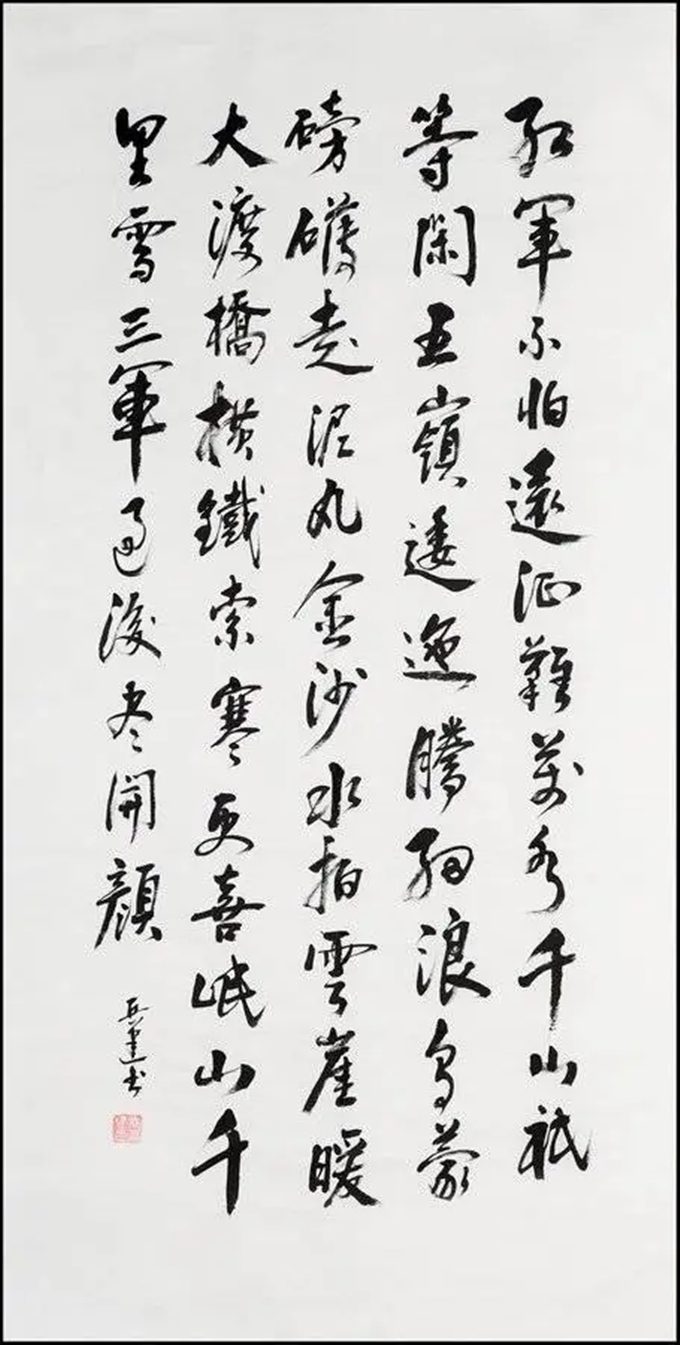 紅軍不怕遠征難萬水千山祇
等閑五嶺逶迤騰細浪烏蒙
磅礴走泥丸金沙水拍雲崖暖
大渡橋橫鐵索寒更喜岷山千
里雪三軍過後尽開顏